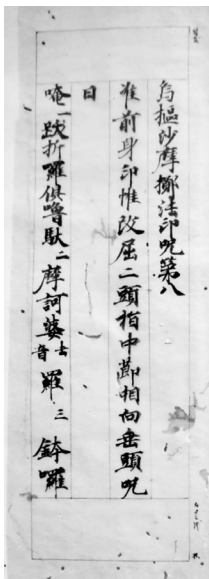 烏樞沙摩擲法印呪第八
准前身印惟改屈二頭指中節相向垂頭呪
曰
唵一跋折羅俱嚕馱二摩訶婆去音羅三鉢囉